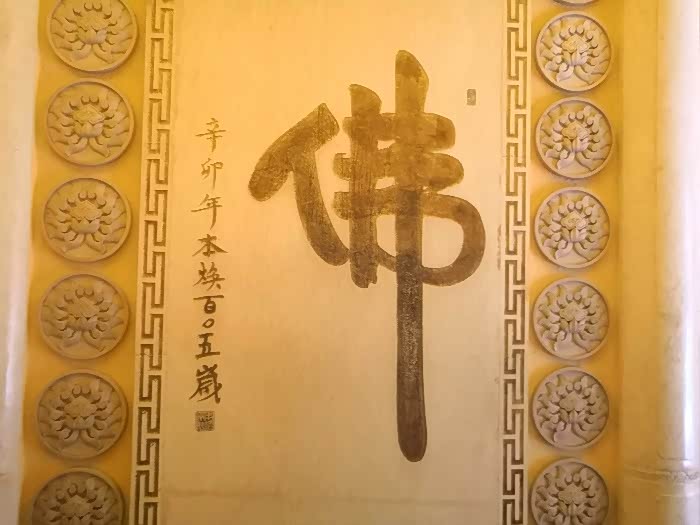 佛
辛卯年本焕百〇五岁